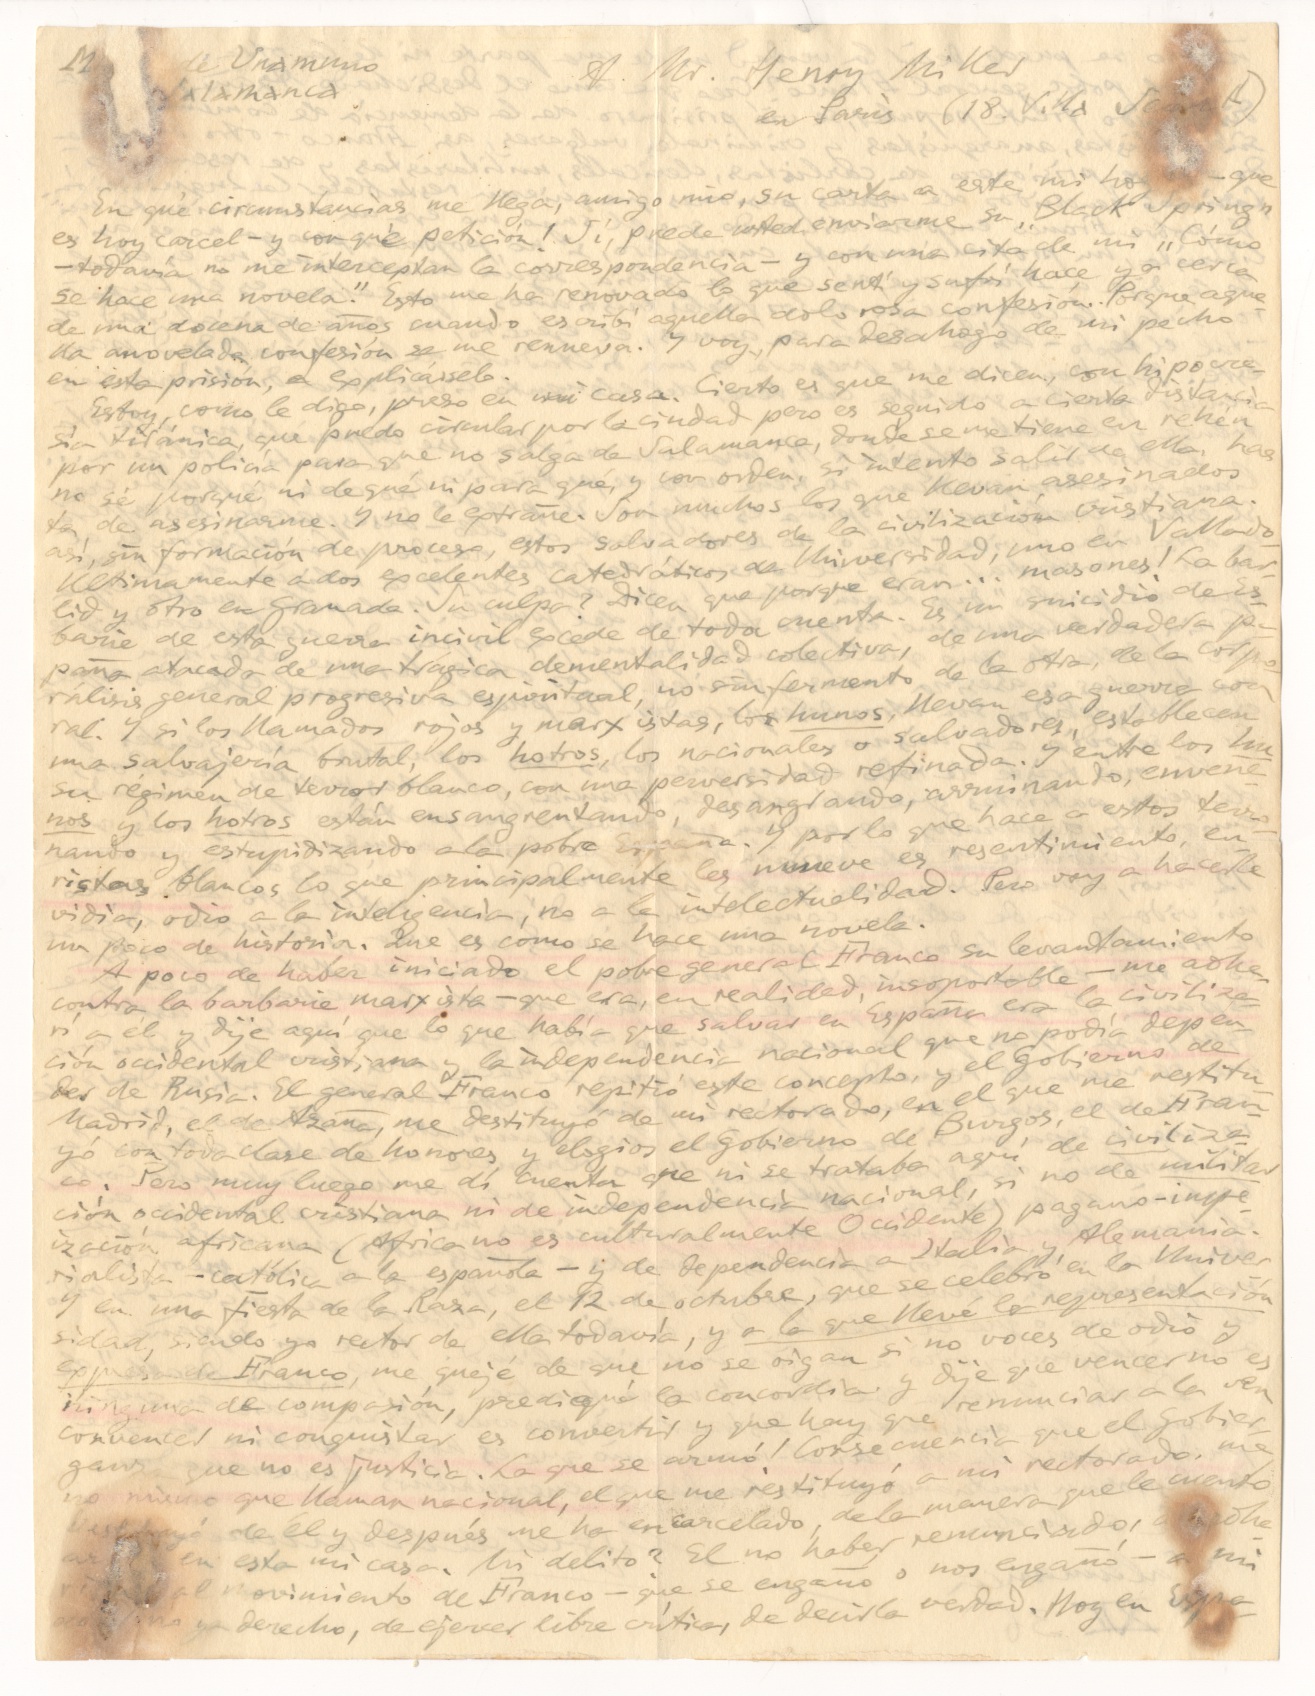 M de Unamuno
Salamanca
A. Mr. Henry Miller
en París (18. Villa
En qué circumstancias me llega, amigo mío, su carta a este mi ho - que
es hoy carcel - y con qué petición! Sí, puede usted enviarme su „Black Spring"
- todavía no me interceptan la correspondencia - y con una cita de mi „Cómo
se hace una novela." Esto me ha renovado lo que sentí y sufrí hace ya cerca
de una docena de años cuando escribí aquella dolorosa confesión. Porque aque-
lla anovelada confesión se me renueva. Y voy, para desahogo de mi pecho
en esta prisión, a explicarselo.
Estoy, como le digo, preso en mi casa. Cierto es que me dicen, con hipocre-
sía tiránica, que puedo circular por la ciudad pero es seguido a cierta distancia
por un policía para que no salga de Salamanca, donde se me tiene en rehén
no sé porqué ni de qué ni para qué, y con orden, si intento salir de ella, has
ta de asesinarme. Y no le extrañe. Son muchos los que llevan asesinados
así, sin formación de proceso, estos salvadores de la civilización cristiana.
Ultimamente a dos excelentes catedráticos de Universidad, uno en Vallado
lid y otro en Granada. Su culpa? Dicen que porque eran... masones! La bar-
barie de esta guerra incivil excede de toda cuenta. Es un suicidio de Es-
paña atacada de una trágica dementalidad colectiva, de una verdadera pa-
rálisis general progresiva espiritual, no sin fermento de la otra, de la corpo
ral. Y si los llamados rojos y marxistas, los hunos, llevan esa guerra con
una salvajería brutal, los hotros, los nacionales o salvadores, establecen
su régimen de terror blanco, con una perversidad refinada. Y entre los hu
nos y los hotros están ensangrentando, desangrando, arruinando, envene
nando y estupidizando a la pobre España. Y por lo que hace a estos terro-
ristas blancos lo que principalmente les mueve es resentimiento, en-
vidia, odio a la inteligencia, no a la intelectualidad. Pero voy a hacerle
un poco de historia. Que es cómo se hace una novela.
A poco de haber iniciado el pobre general Franco su levantamiento
contra la barbarie marxista - que era, en realidad, insoportable - me adhe-
rí a él y dije aquí que lo que había que salvar en España era la civiliza-
ción occidental cristiana y la independencia nacional que no podía depen-
der de Rusia. El general Franco repitió este concepto, y el Gobierno de
Madrid, el de Azaña, me destituyó de mi rectorado, en el que me restitu
yó con toda clase de honores y elogios el Gobierno de Burgos, el de Fran-
co. Pero muy luego me dí cuenta que ni se trataba aquí de civiliza-
ción occidental cristiana ni de independencia nacional, si no de militar
ización africana (Africa no es culturalmente Occidente) pagano-impe
rialista - católica a la española - y de dependencia a Italia y Alemania.
Y en una Fiesta de la Raza, el 12 de octubre, que se celebró en la Univer
sidad, siendo yo rector de ella todavía, y a la que llevé la representación
expresa de Franco, me quejé de que no se oigan si no voces de odio y
ninguna de compasión, prediqué la concordia y dije que vencer no es
convencer ni conquistar es convertir y que hay que renunciar a la ven
ganza que no es justicia. La que se armó! Consecuencia que el Gobier-
no mismo que llaman nacional, el que me restituyó a mi rectorado, me
destituyó de él y después me ha encarcelado, de la manera que le cuento
en esta mi casa. Mi delito? El no haber renunciado, adhe
al movimiento de Franco - que se engañó o nos engañó - a mi
derecho, de ejercer libre crítica, de decir la verdad. Hoy en Espa-